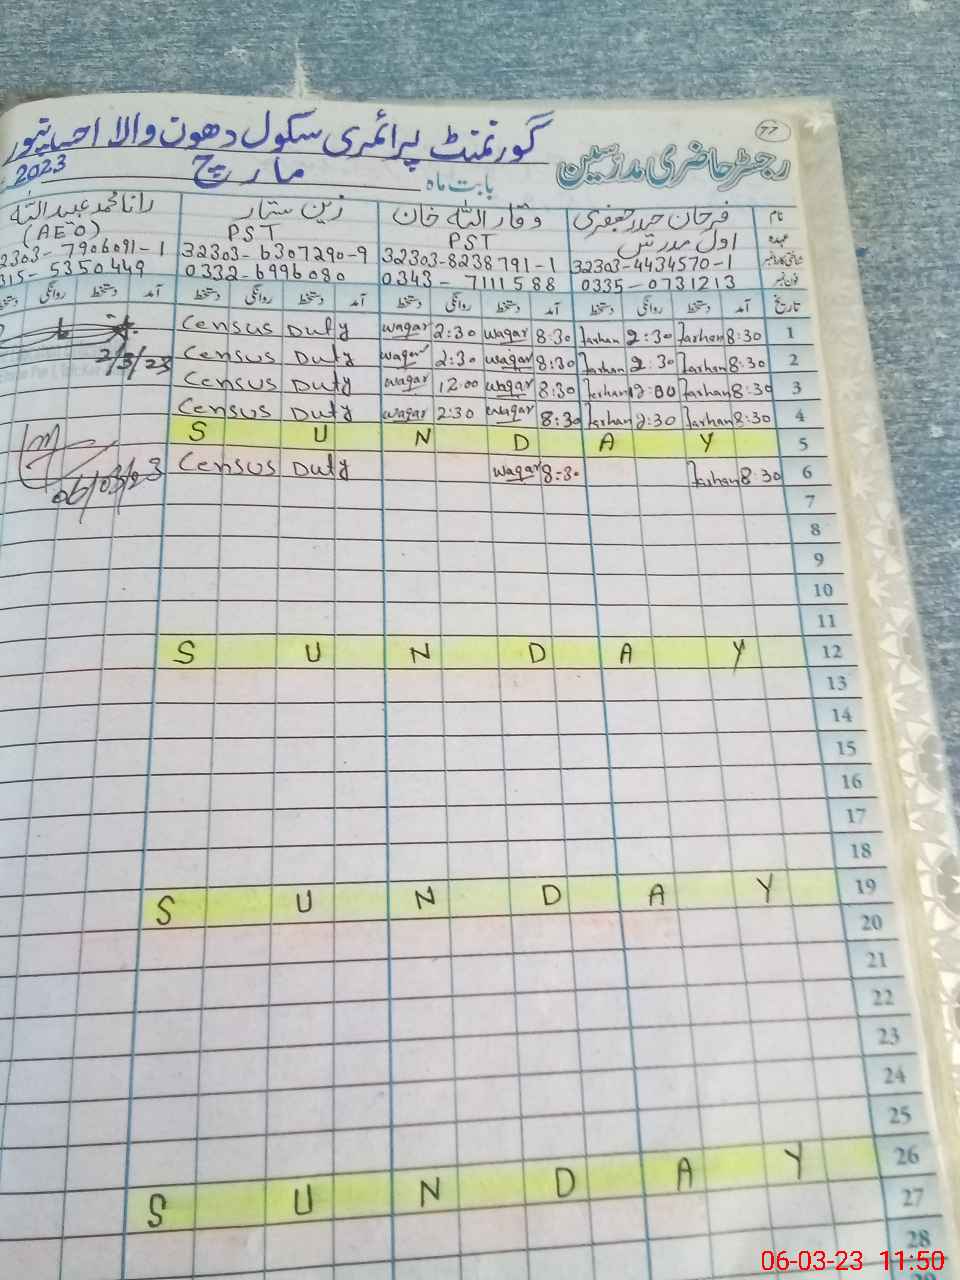 77
گورنمنٹ پرائمری سکول دھون والا احمدپور
رجسٹر حاضری مدرسین
بابت ماہ مارچ 2023
نام فرحان حیدر جعفری وقار اللہ خان زین ستار رانا محمد عبید اللہ
عہدہ اول مدرس PST PST (AEO)
32303-4434570-1 32303-8238791-1 32303-6307290-9 2303-7906091-1
فون نمبر 0335-0731213 0343-7111588 0332-6996080 315-5350449
تاریخ آمد دستخط روانگی دستخط آمد دستخط روانگی دستخط آمد دستخط روانگی دستخط آمد دستخط روانگی دستخط
1 8:30 Farhan 2:30 Farhan 8:30 Waqar 2:30 Waqar Census Duty
2 8:30 Farhan 2:30 Farhan 8:30 Waqar 2:30 Waqar Census Duty 2/3/23
3 8:30 Farhan 12:00 Farhan 8:30 Waqar 12:00 Waqar Census Duty
4 8:30 Farhan 2:30 Farhan 8:30 Waqar 2:30 Waqar Census Duty
5 SUNDAY
6 8:30 Farhan 8:30 Waqar Census Duty 06/03/23
7
8
9
10
11
12 SUNDAY
13
14
15
16
17
18
19 SUNDAY
20
21
22
23
24
25
26 SUNDAY
27
28
06-03-23 11:50